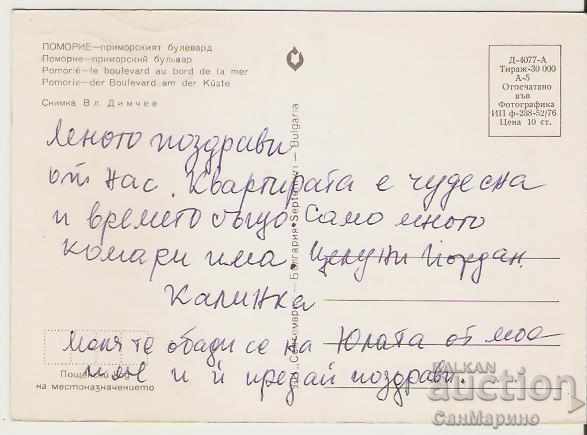 ПОМОРИЕ—приморският булевард
Поморие—приморский бульвар
Pomorié—le boulevard au bord de la mer
Pomorie—der Boulevard am der Küste
Снимка Вл. Димчев
Д-4077-А
Тираж-30 000
А-5
Отпечатано
във
Фотографика
ИП ф-288-52/76
Цена 10 ст.
Септември • България • Septemvri — Bulgaria
Много поздрави
от нас. Квартирата е чудесна
и времето също само много
комари има. Целуни Йордан.
Калинка
Моля те обади се на Юлата от моо
име и ѝ предай поздрави.
на местоназначението
BALKAN
auction
СанМарино